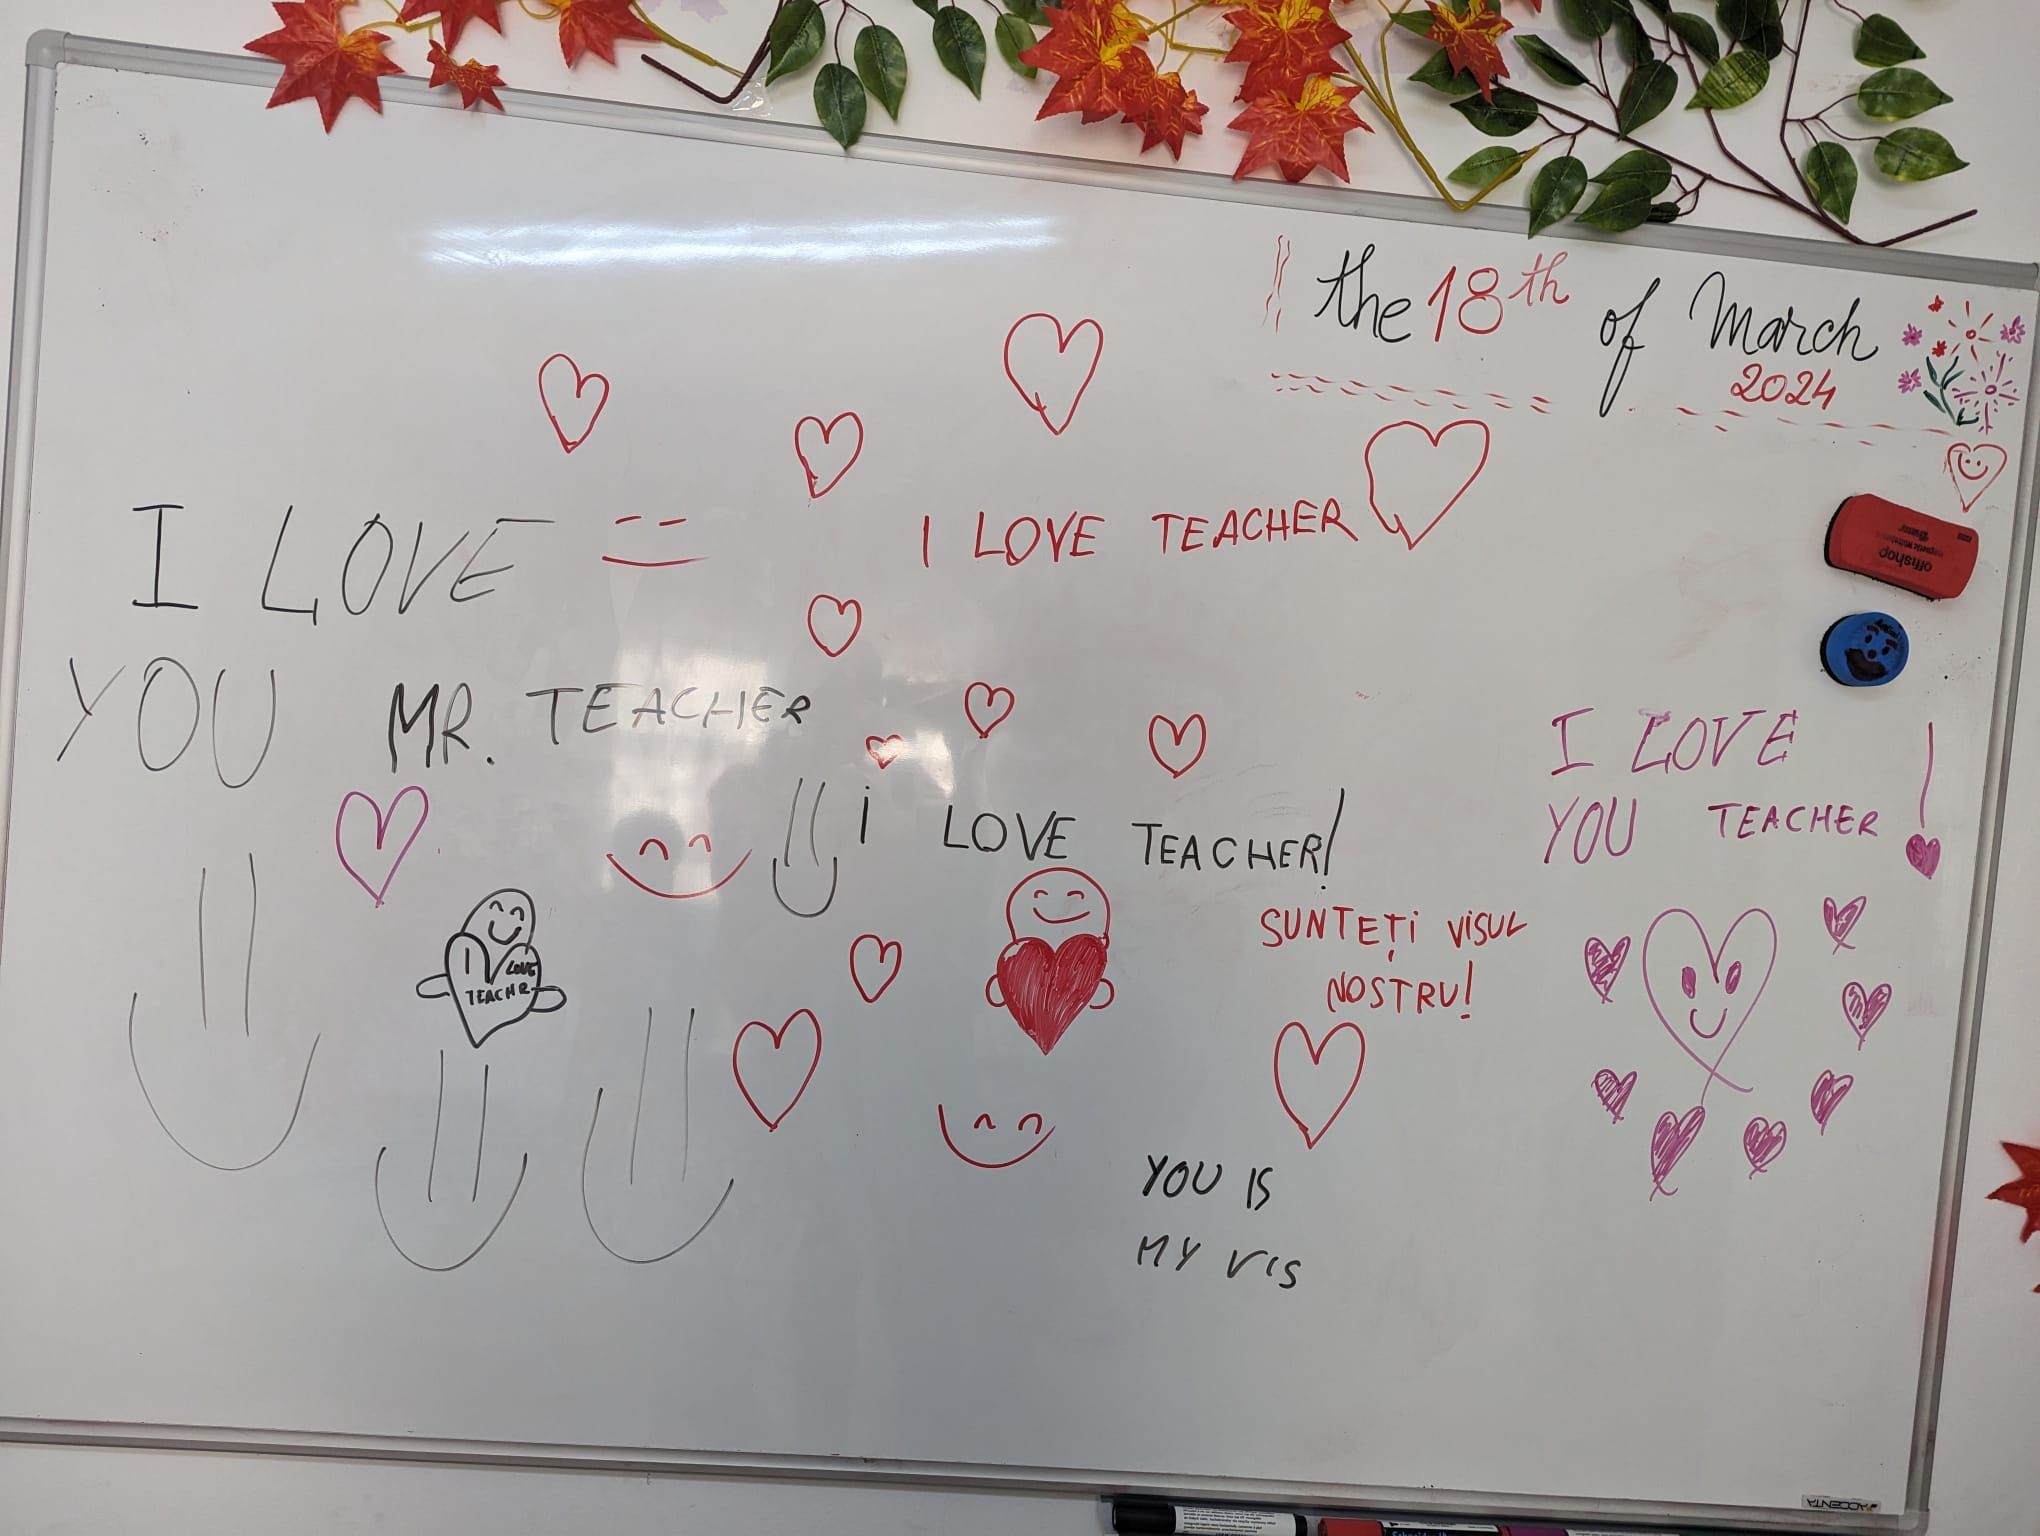 the 18th of March
2024
I LOVE
YOU MR. TEACHER
I LOVE TEACHER
I LOVE TEACHER!
I LOVE
TEACHR
SUNTEȚI VISUL
NOSTRU!
YOU IS
MY VIS
I LOVE
YOU TEACHER !
offishop
ACCENTA